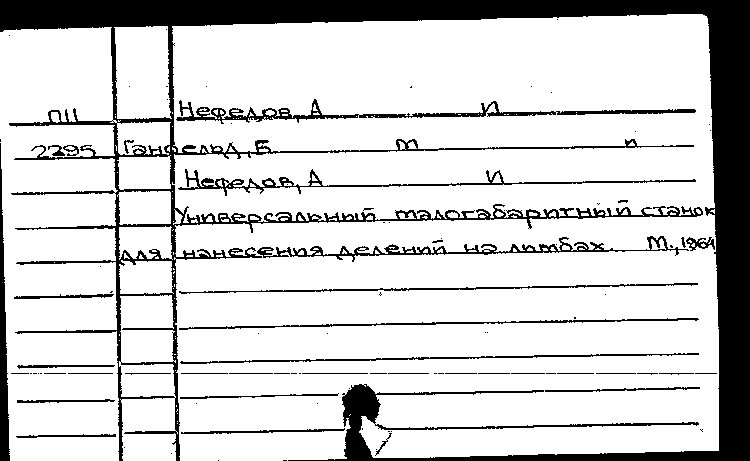 П11 Нефедов, А И
2295 Ганфельд, Б М п
Нефедов, А И
Универсальный малогабаритный станок
для нанесения делений на лимбах. М., 1964